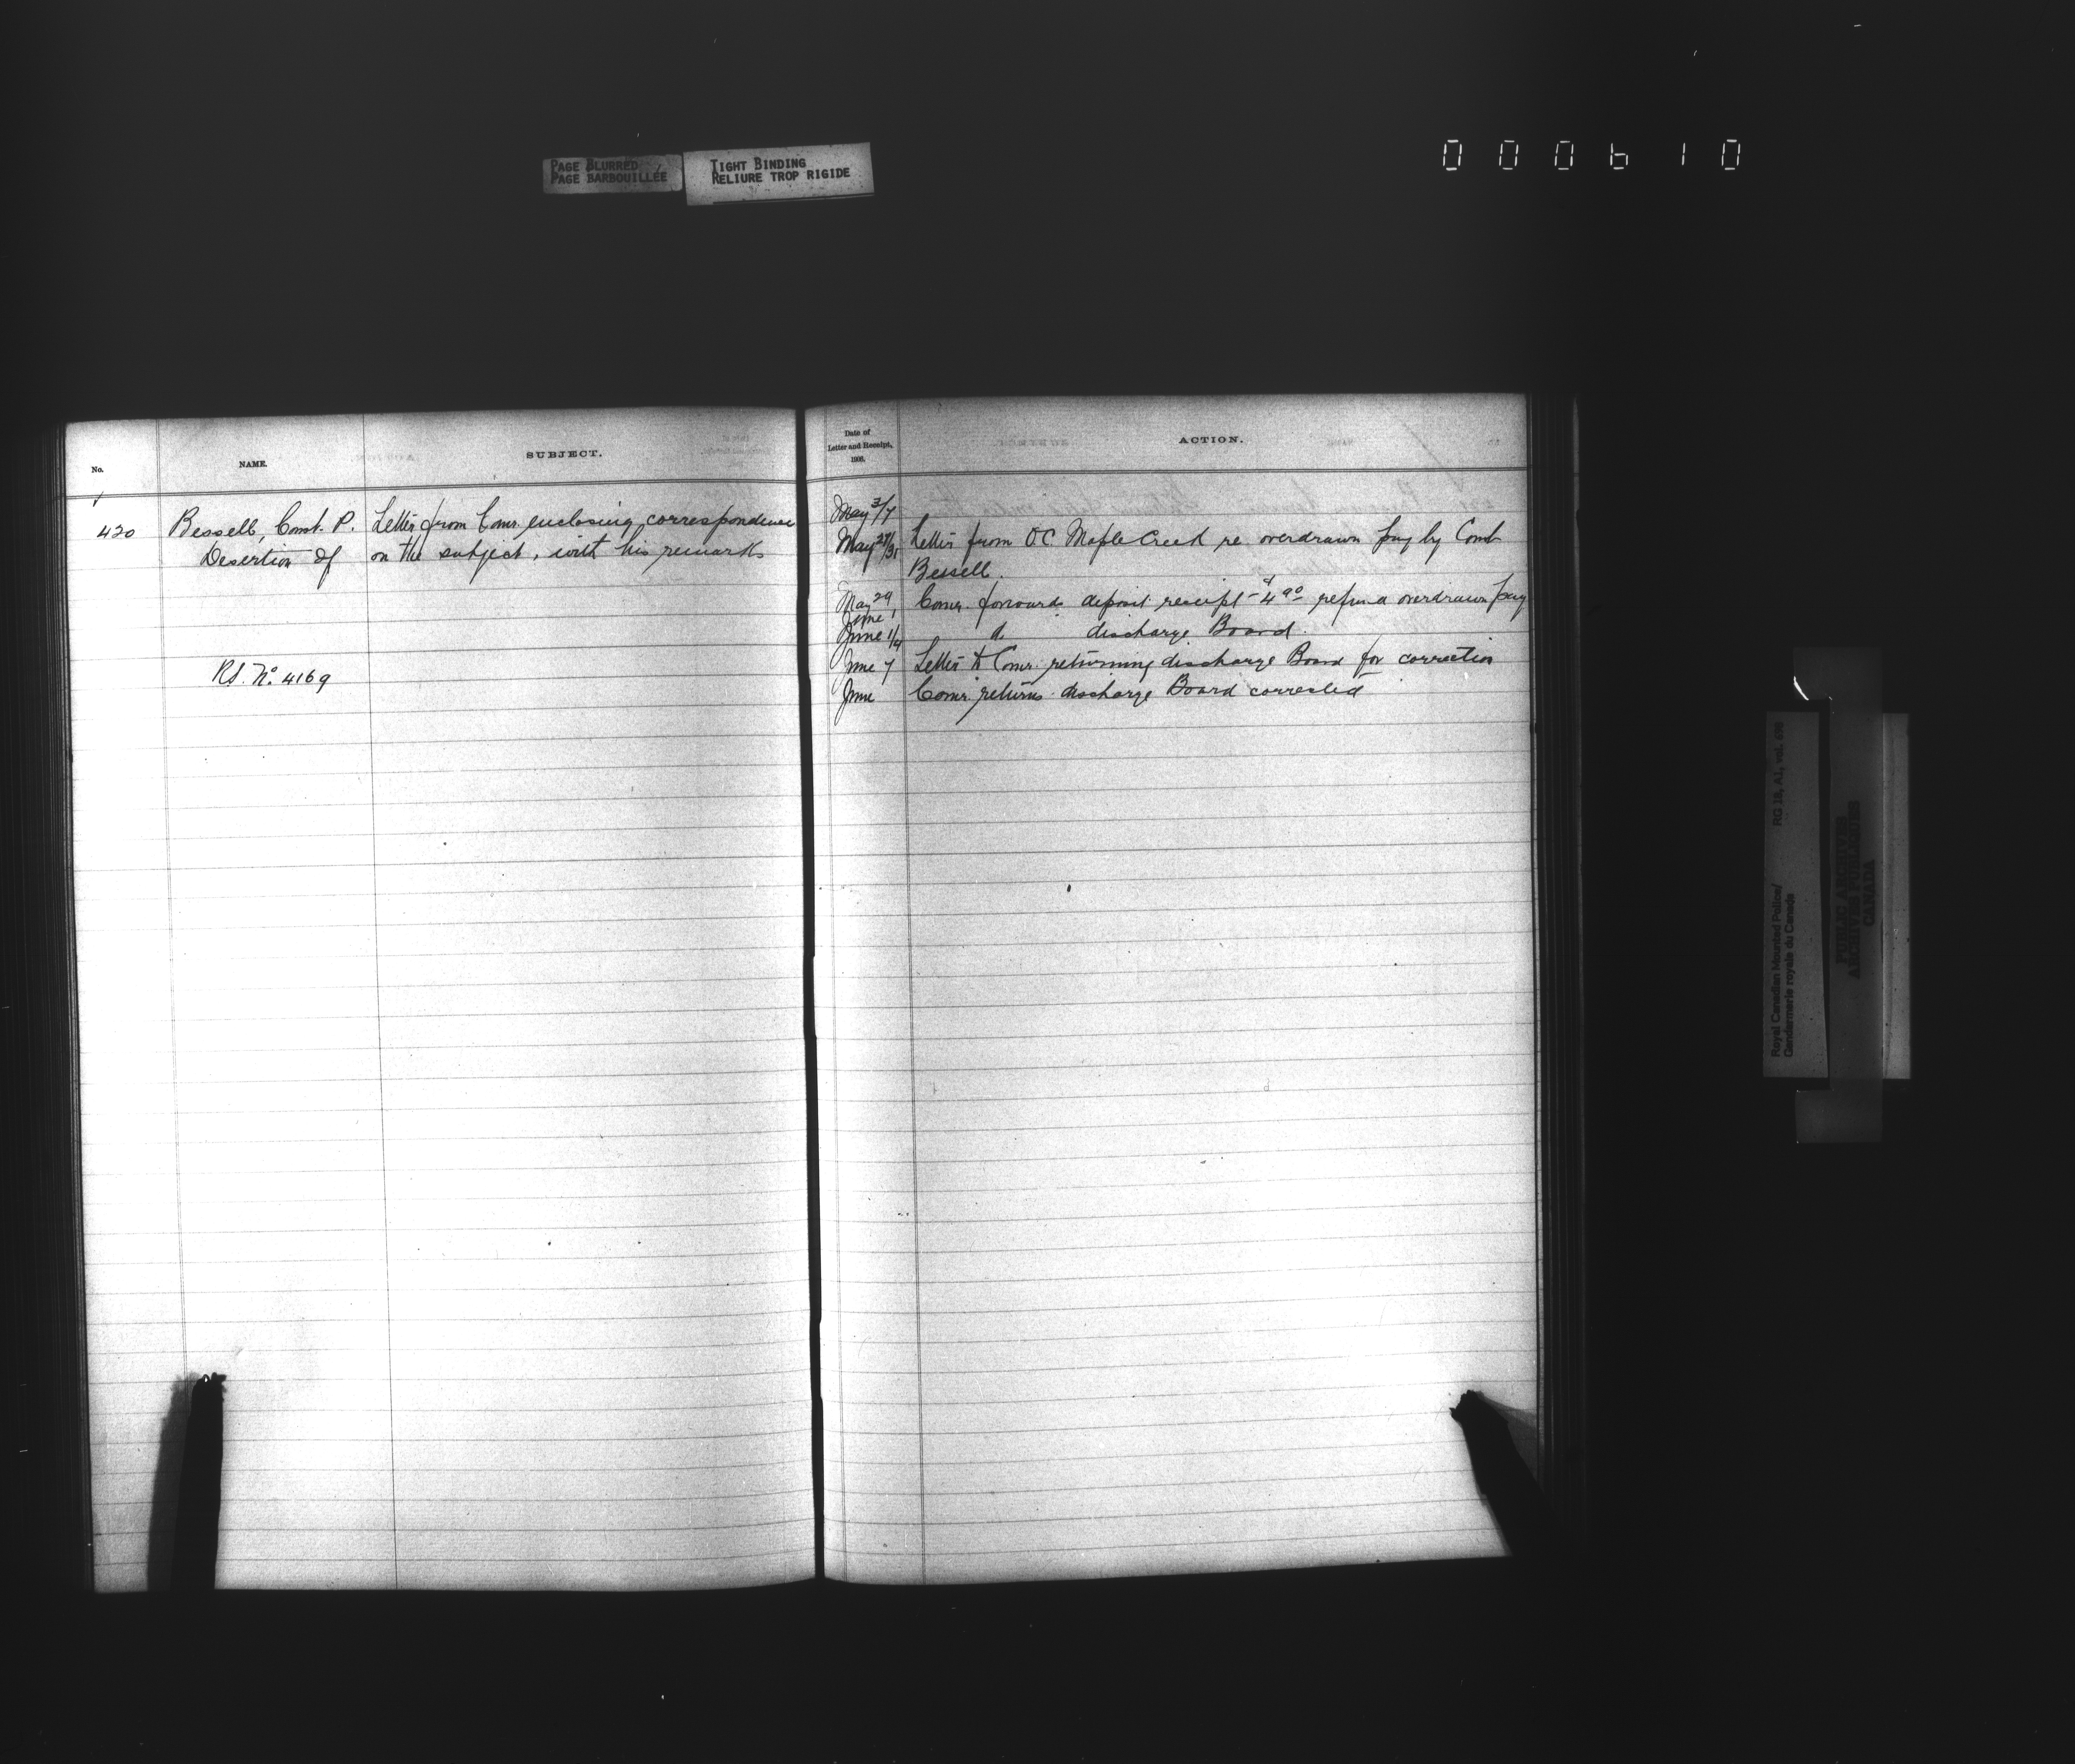 PAGE BLURRED
PAGE BARBOUILLÉE
TIGHT BINDING
RELIURE TROP RIGIDE
000610
No.
NAME.
SUBJECT.
420
Bessell, Const. P.
Desertion of
Rd. No. 4169
Letter from Comr. enclosing correspondence
on the subject, with his remarks
Date of
Letter and Receipt,
1906.
ACTION.
May 3/7
May 29/31 Letter from O.C. Maple Creek re overdrawn pay by Const
Bessell.
May 29 Comr. forwards deposit receipt $4.90 refund overdrawn pay
June 1
June 1/4 do discharge Board.
June 7 Letter to Comr. returning discharge Board for correction
June Comr. returns discharge Board corrected
Royal Canadian Mounted Police/ RG 18, A1, vol. 699
Gendarmerie royale du Canada
PUBLIC ARCHIVES
ARCHIVES PUBLIQUES
CANADA